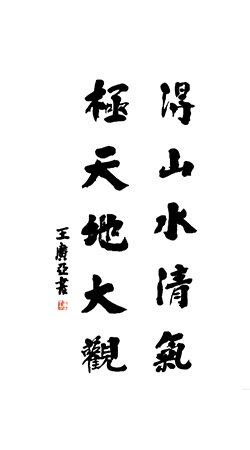 得山水清氣
極天地大觀
王廣亞書